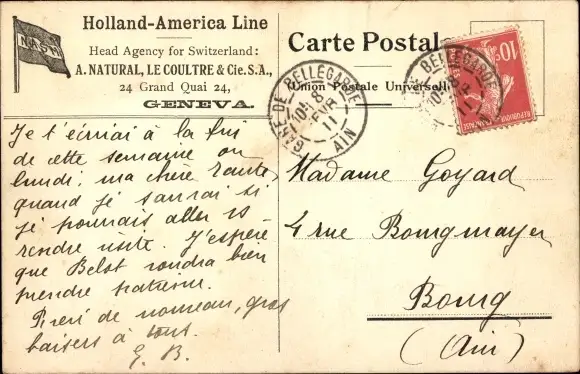 NASM
Holland-America Line
Head Agency for Switzerland:
A. NATURAL, LE COULTRE & Cie. S.A.,
24 Grand Quai 24,
GENEVA.
Carte Postale
Union Postale Universelle
GARE DE BELLEGARDE
8
FEVR
11
AIN
BELLEGARDE
11
10
REPUBLIQUE FRANÇAISE
Je t'écrirai à la fin
de cette semaine ou
lundi, ma chère
quand je saurai si
je pourrais aller
rendre visite. J'espère
que Belot voudra bien
prendre patience.
Merci de nouveau, gros
baisers à tous.
G. B.
Madame Goyard
4 rue Bourgmayer
Bourg
(Ain)